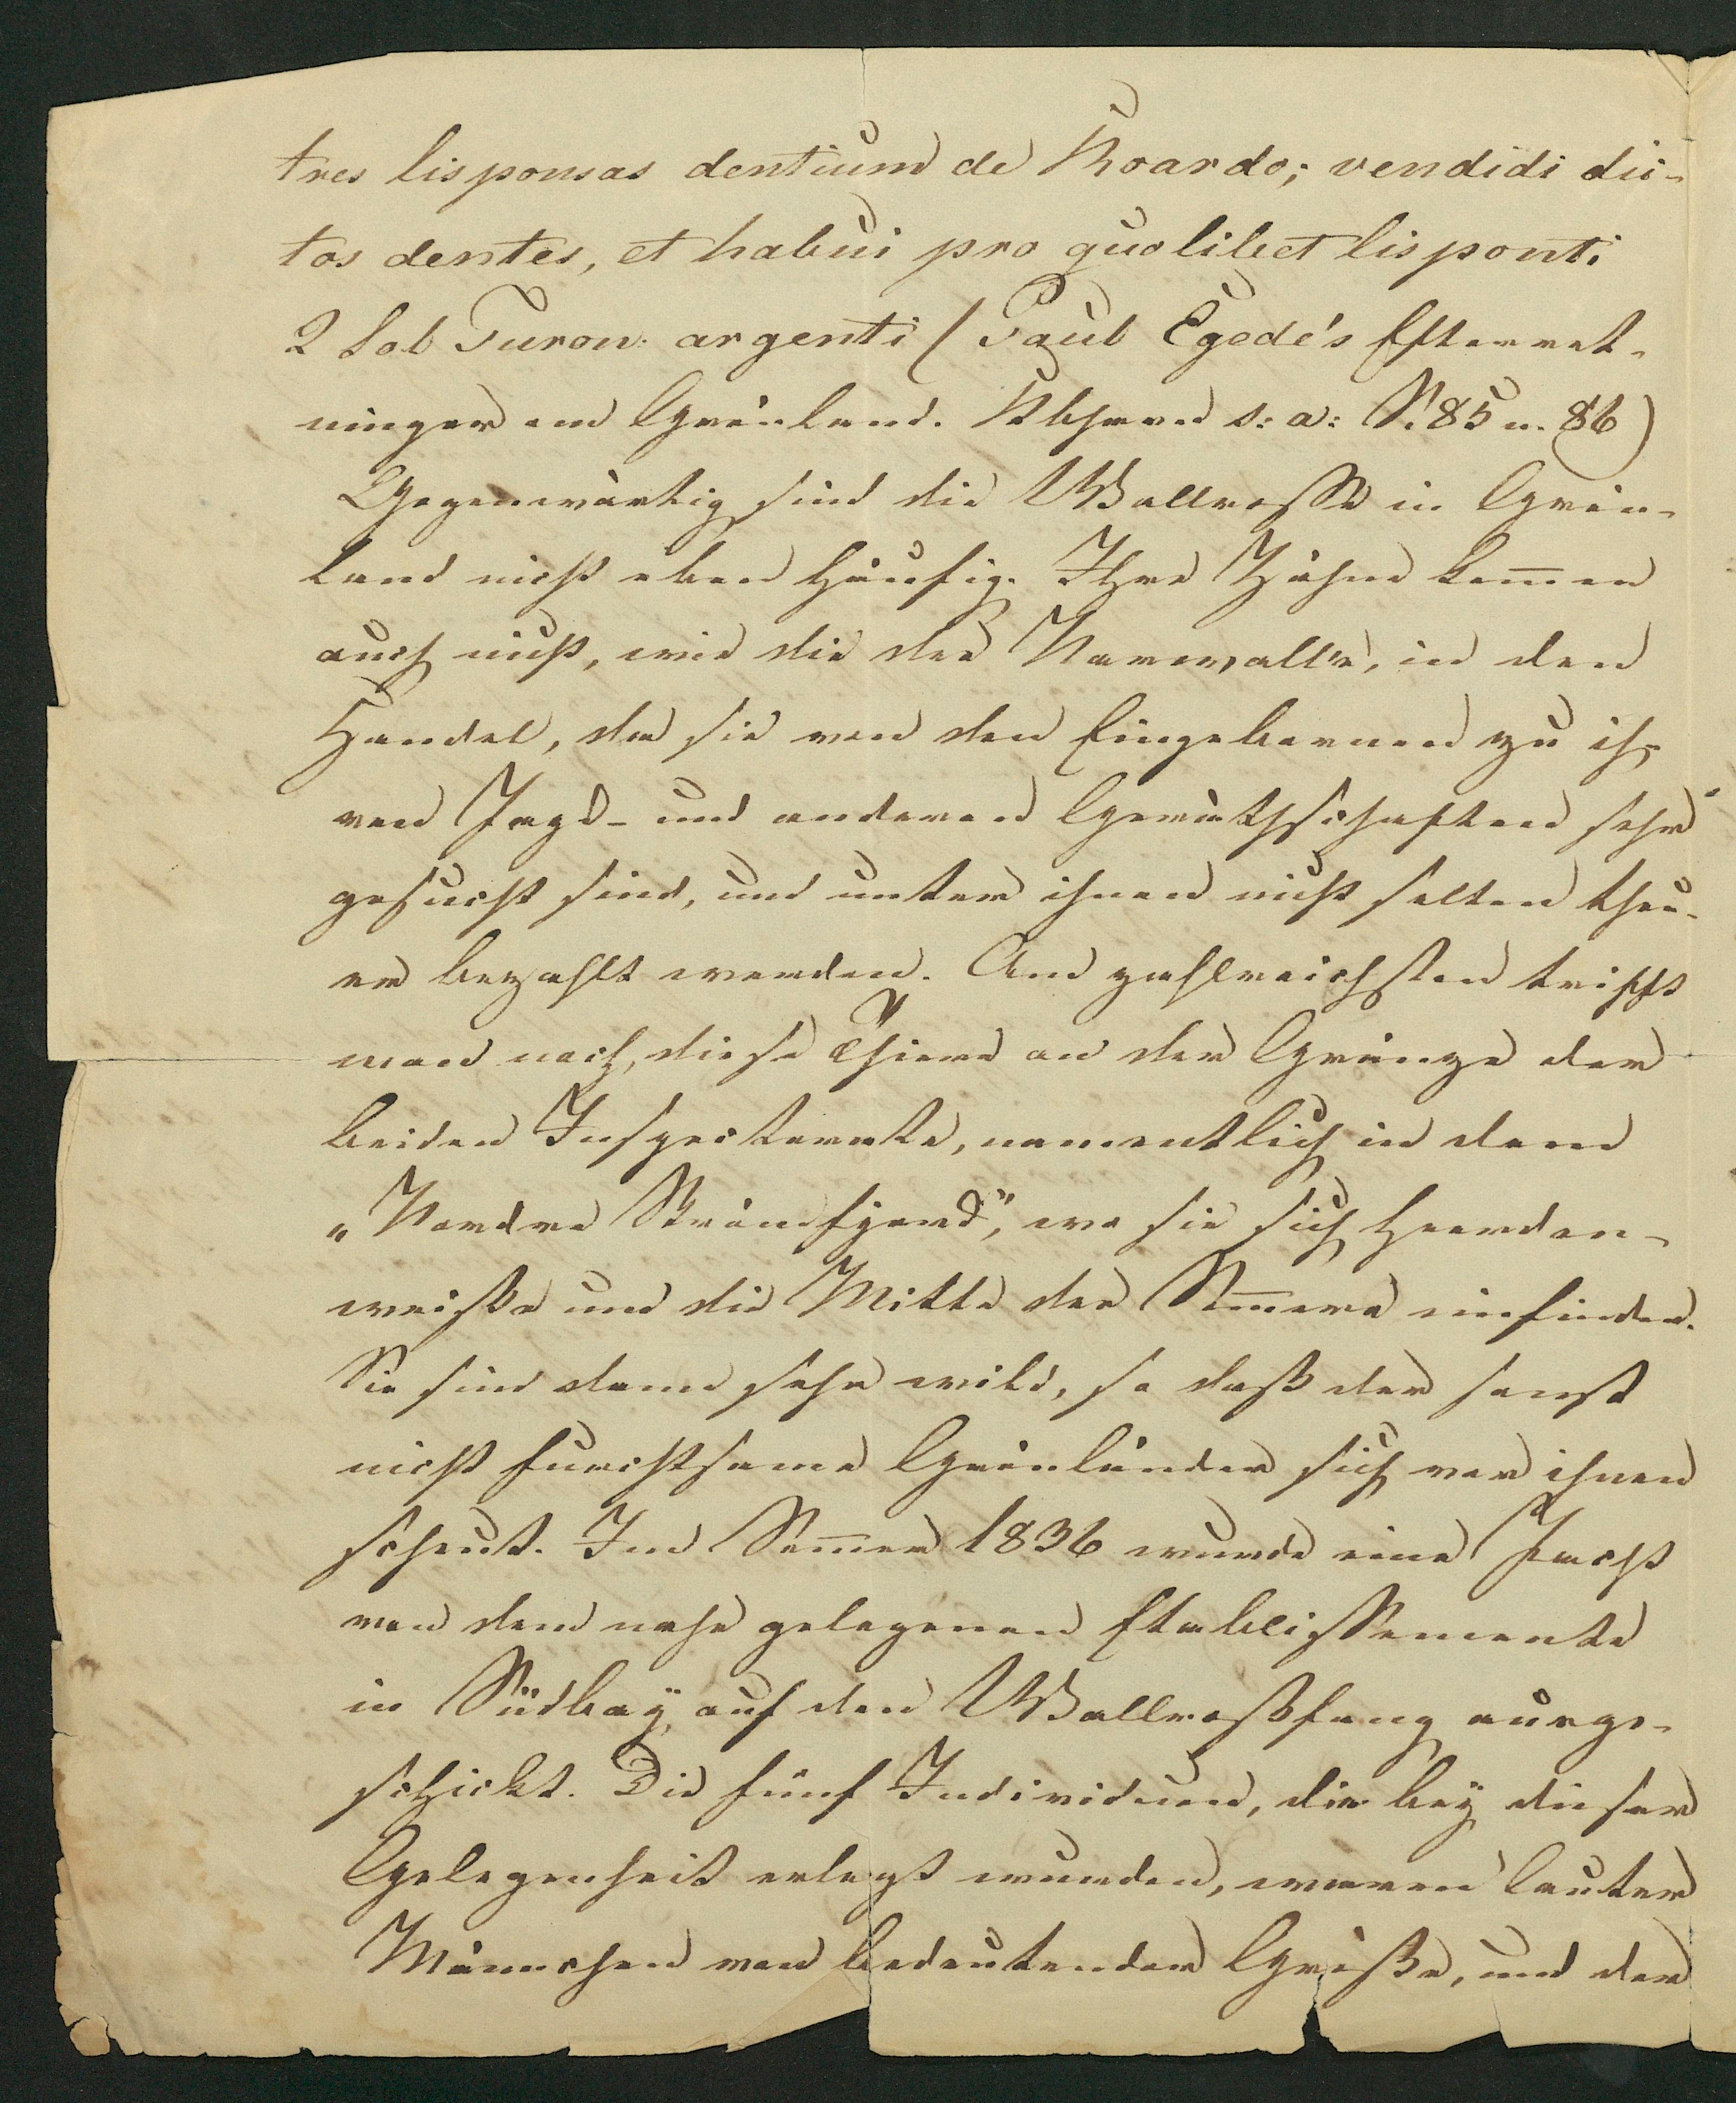 tres lisponsas dentium de Roardo; vendidi dic-
tos dentes, et habui pro quolibet lisponti
2 Sol Turon. argenti (Paul Egede's Efterret-
ninger om Grönland. Kbhavn s: a: S. 85 u. 86)
Gegenwärtig sind die Wallrosse in Grön-
land nicht eben häufig. Ihre Zähne kom̄en
auch nicht, wie die des Narwalls, in den
Handel, da sie von den Eingebornen zu ih-
ren Jagd- und anderen Geräthschaften sehr
gesucht sind, und unter ihnen nicht selten theu-
er bezahlt werden. Am zahlreichsten trifft
man noch, diese Thiere an der Gränze der
beiden Inspectorate, namentlich in dem
„Nordre Strömfjord", wo sie sich heerden-
weiße um die Mitte des Som̄ers einfinden.
Sie sind dann sehr wild, so daß der sonst
nicht furchtsame Grönländer sich vor ihnen
scheut. Im Som̄er 1836 wurde eine Jacht
von dem nahe gelegenen Etablissemente
in Südbay auf den Wallroßfang ausge-
schickt. Die fünf Individuen, die bey dieser
Gelegenheit erlegt wurden, waren lauter
Männchen von bedeutender Größe, und der